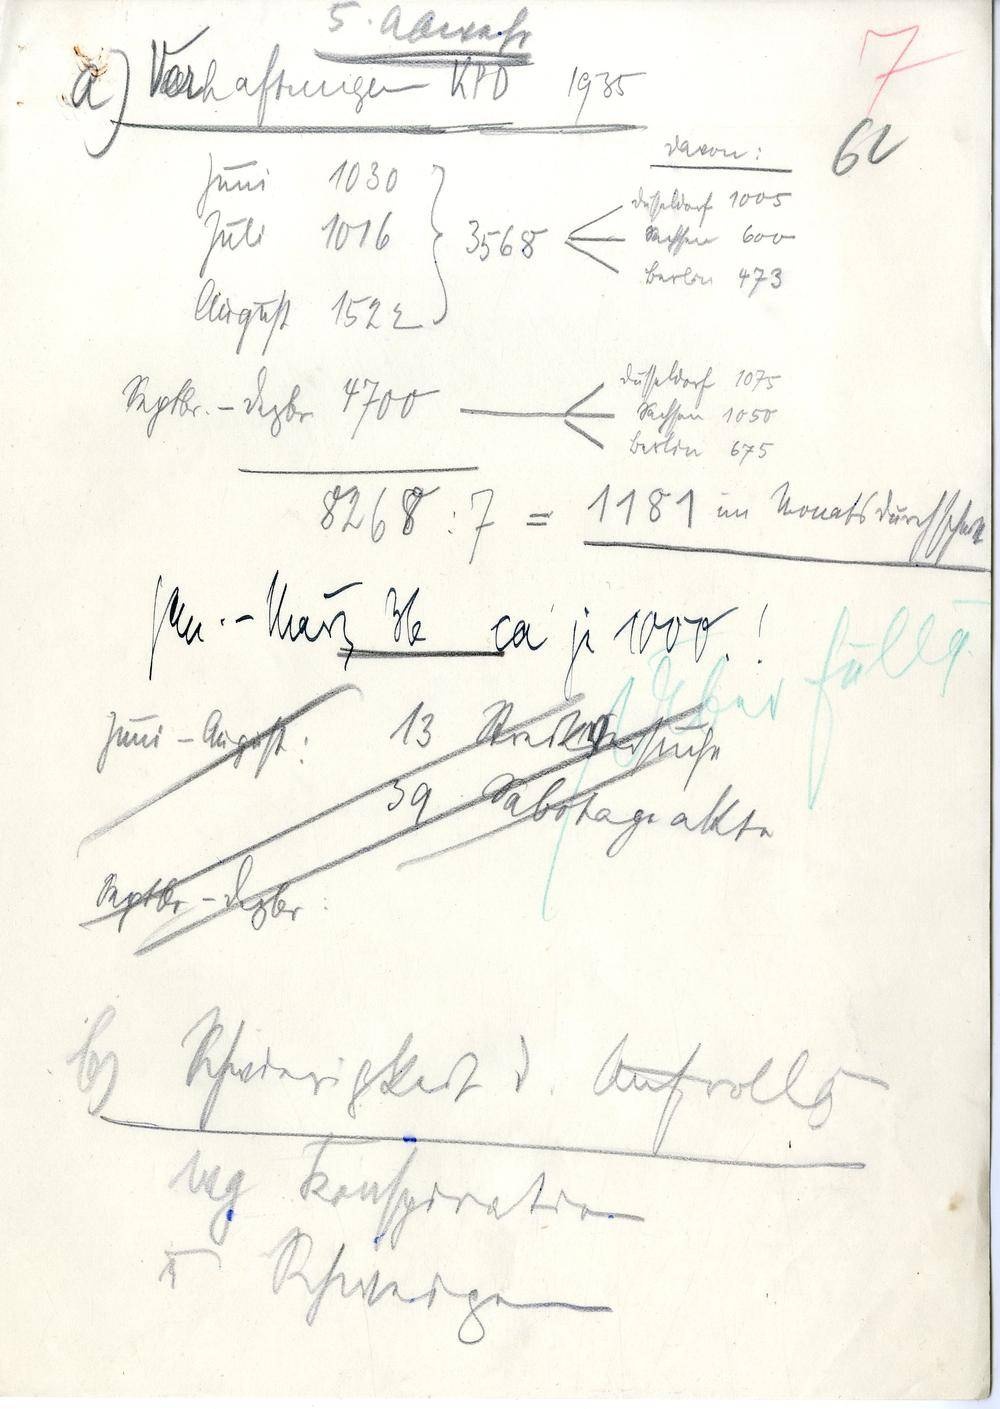 5. Abwehr
7
a) Verhaftungen KPD 1935
62
davon:
Juni 1030
Juli 1016
August 1522
3568
Düsseldorf 1005
Sachsen 600
Berlin 473
Septbr. - Dezbr. 4700
Düsseldorf 1075
Sachsen 1050
Berlin 675
8268 : 7 = 1181 im Monatsdurchschnitt
Jan. - März 36 ca je 1000!
Überfüllg.
Juni - August: 13 Streikversuche
39 Sabotageakte
Septbr - Dezbr:
b) Schwierigkeit d. Aufrollg
wg Konspiration
u Schweigen